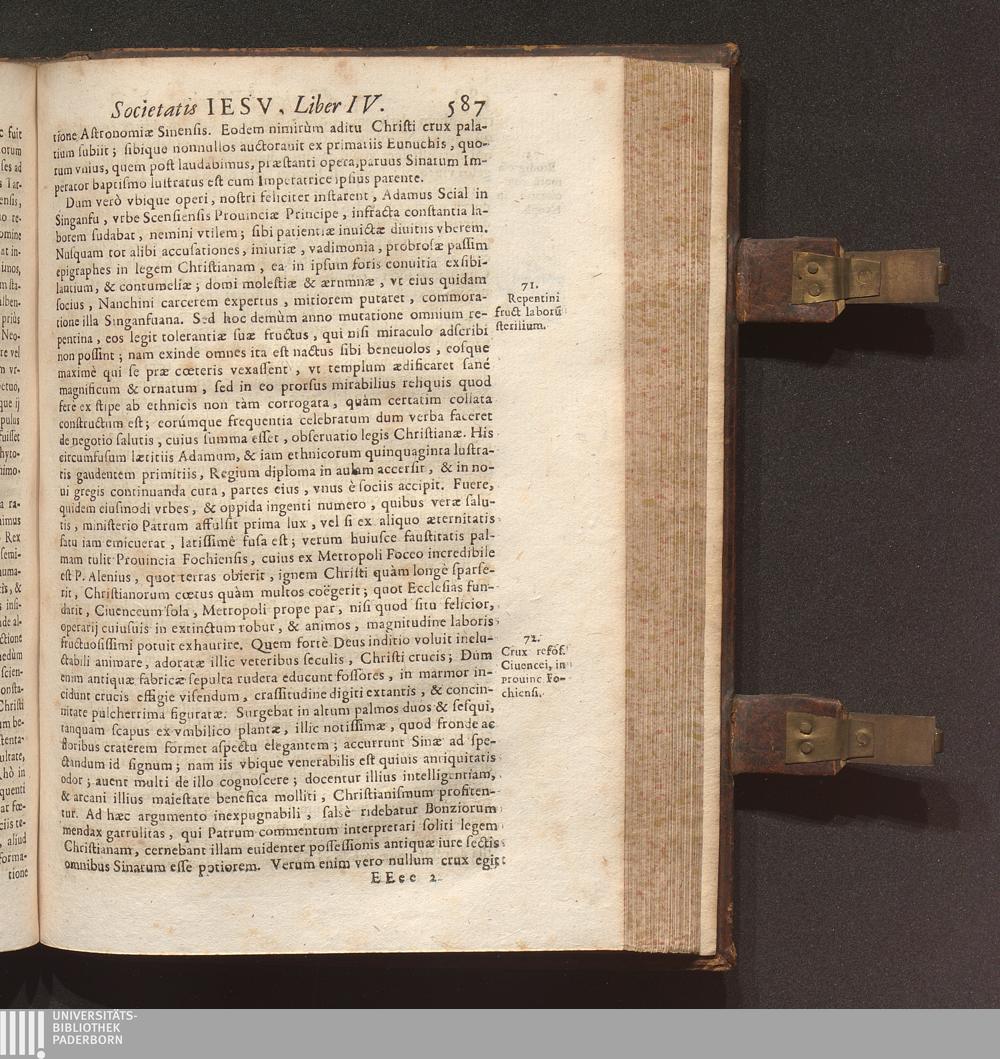 Societatis IESV, Liber IV. 587
tione Astronomiæ Sinensis. Eodem nimirùm aditu Christi crux pala-
tium subiit; sibique nonnullos auctorauit ex primariis Eunuchis, quo-
rum vnius, quem post laudabimus, præstanti opera, paruus Sinarum Im-
perator baptismo lustratus est cum Imperatrice ipsius parente.
Dum verò vbique operi, nostri feliciter instarent, Adamus Scial in
Singanfu, vrbe Scensiensis Prouinciæ Principe, infracta constantia la-
borem sudabat, nemini vtilem; sibi patientiæ inuictæ diuitiis vberem.
Nusquam tot alibi accusationes, iniuriæ, vadimonia, probrosæ passim
epigraphes in legem Christianam, ea in ipsum foris conuitia exsibi-
lantium, & contumeliæ; domi molestiæ & ærumnæ, vt eius quidam
socius, Nanchini carcerem expertus, mitiorem putaret, commora-
tione illa Singanfuana. Sed hoc demùm anno mutatione omnium re-
pentina, eos legit tolerantiæ suæ fructus, qui nisi miraculo adscribi
non possint; nam exinde omnes ita est nactus sibi beneuolos, eosque
maximè qui se præ cœteris vexassent, vt templum ædificaret sanè
magnificum & ornatum, sed in eo prorsus mirabilius reliquis quod
ferè ex stipe ab ethnicis non tàm corrogata, quàm certatim collata
constructum est; eorúmque frequentia celebratum dum verba faceret
de negotio salutis, cuius summa esset, obseruatio legis Christianæ. His
circumfusum lætitiis Adamum, & iam ethnicorum quinquaginta lustra-
tis gaudentem primitiis, Regium diploma in aulam accersit, & in no-
ui gregis continuanda cura, partes eius, vnus è sociis accipit. Fuere,
quidem eiusmodi vrbes, & oppida ingenti numero, quibus veræ salu-
tis, ministerio Patrum affulsit prima lux, vel si ex aliquo æternitatis
satu iam emicuerat, latissimè fusa est; verum huiusce faustitatis pal-
mam tulit Prouincia Fochiensis, cuius ex Metropoli Foceo incredibile
est P. Alenius, quot terras obierit, ignem Christi quàm longè sparse-
rit, Christianorum cœtus quàm multos coëgerit; quot Ecclesias fun-
darit, Ciuenceum sola, Metropoli prope par, nisi quod situ felicior,
operarij cuiusuis in extinctum robur, & animos, magnitudine laboris
fructuosissimi potuit exhaurire. Quem fortè Deus inditio voluit inelu-
ctabili animare, adoratæ illic veteribus seculis, Christi crucis; Dum
enim antiquæ fabricæ sepulta rudera educunt fossores, in marmor in-
cidunt crucis effigie visendum, crassitudine digiti extantis, & concin-
nitate pulcherrima figuratæ. Surgebat in altum palmos duos & sesqui,
tanquam scapus ex vmbilico plantæ, illic notissimæ, quod fronde ac
floribus craterem formet aspectu elegantem; accurrunt Sinæ ad spe-
ctandum id signum; nam iis vbique venerabilis est quiuis antiquitatis
odor; auent multi de illo cognoscere; docentur illius intelligentiam,
& arcani illius maiestate benefica molliti, Christianismum profiten-
tur. Ad hæc argumento inexpugnabili, salsè ridebatur Bonziorum
mendax garrulitas, qui Patrum commentum interpretari soliti legem
Christianam, cernebant illam euidenter possessionis antiquæ iure sectis
omnibus Sinarum esse potiorem. Verum enim vero nullum crux egit
EEee 2
71.
Repentini
fruct laborū
sterilium.
72.
Crux refos.
Ciuencei, in
prouinc Fo-
chiensi.
UNIVERSITÄTS-
BIBLIOTHEK
PADERBORN